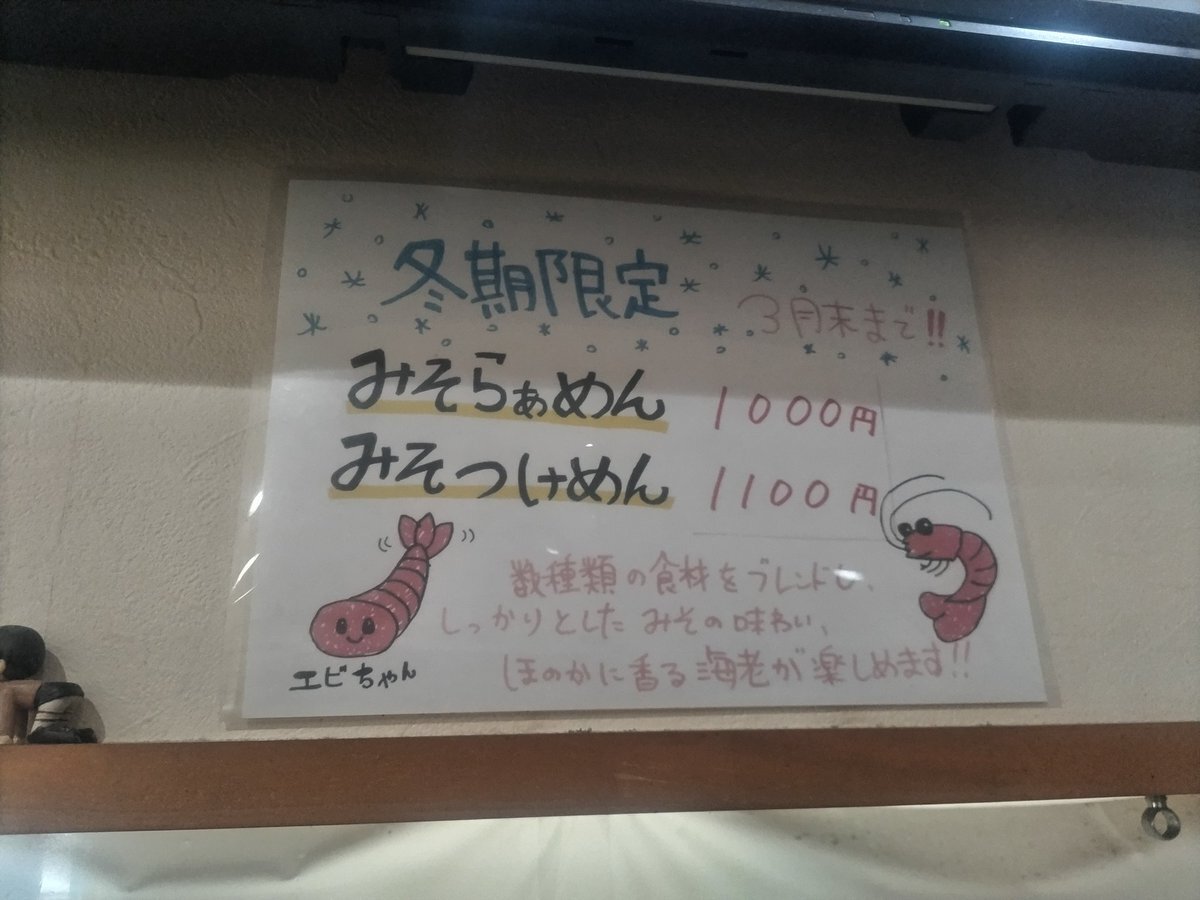 冬期限定
3月末まで!!
みそらぁめん 1000円
みそつけめん 1100円
数種類の食材をブレンドし、
しっかりとしたみその味わい、
ほのかに香る海老が楽しめます!!
エビちゃん